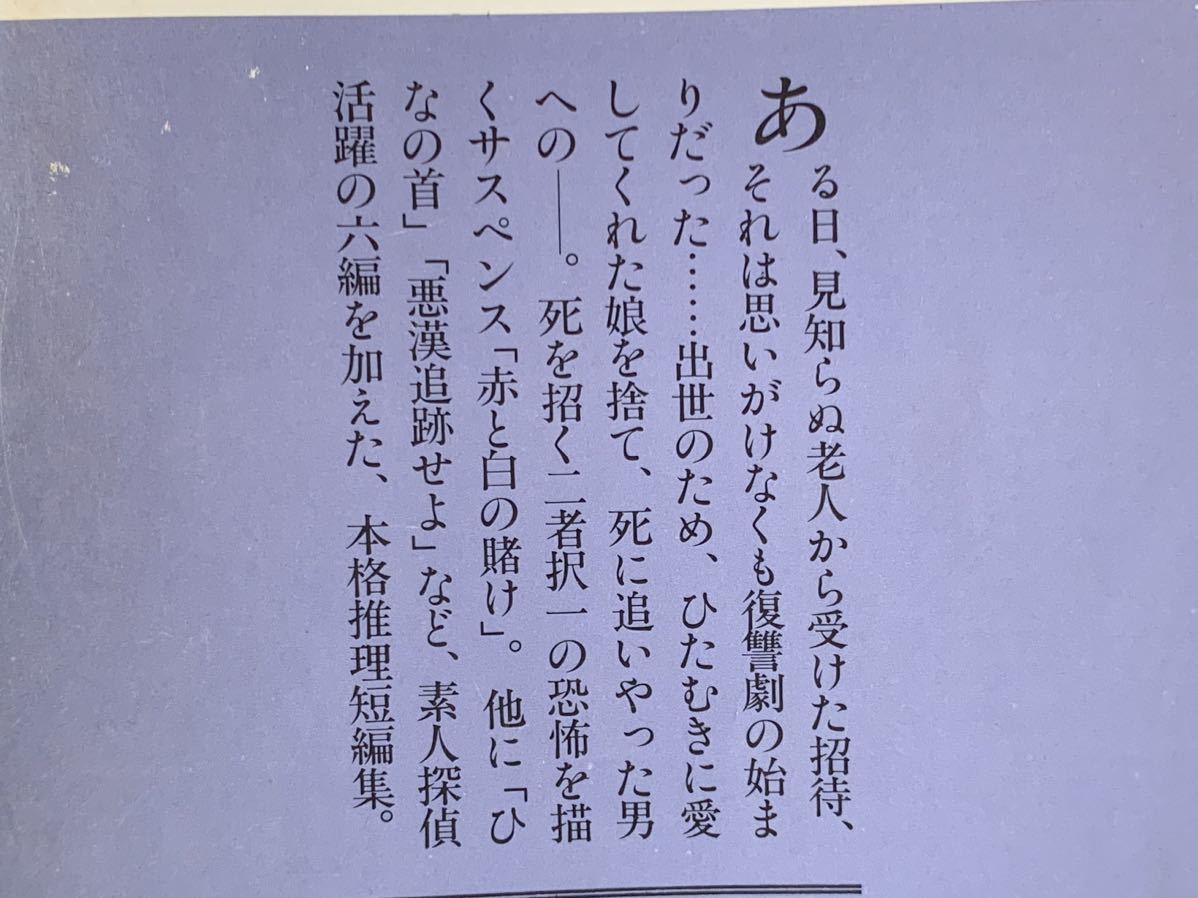 ある日、見知らぬ老人から受けた招待、
それは思いがけなくも復讐劇の始ま
りだった……出世のため、ひたむきに愛
してくれた娘を捨て、死に追いやった男
への――。死を招く二者択一の恐怖を描
くサスペンス「赤と白の賭け」。他に「ひ
なの首」「悪漢追跡せよ」など、素人探偵
活躍の六編を加えた、本格推理短編集。